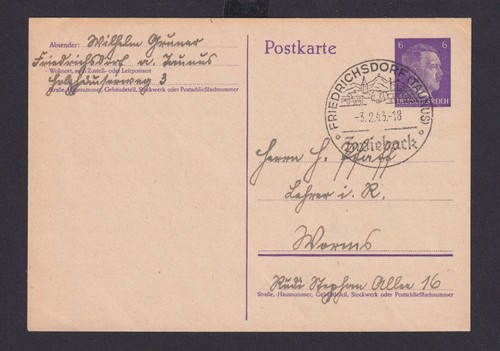 Absender: Wilhelm Gruner
Friedrichsdorf a. Taunus
Wohnort, auch Zustell- oder Leitpostamt
Holzhäuserweg 3
Straße, Hausnummer, Gebäudeteil, Stockwerk oder Postschließfachnummer
Postkarte
6 6
DEUTSCHES REICH
FRIEDRICHSDORF (TAUNUS)
-3.2.43.-18
Zwieback
Herrn H. Pfaff
Lehrer i. R.
Worms
Rudi Stephan Allee 16
Straße, Hausnummer, Gebäudeteil, Stockwerk oder Postschließfachnummer